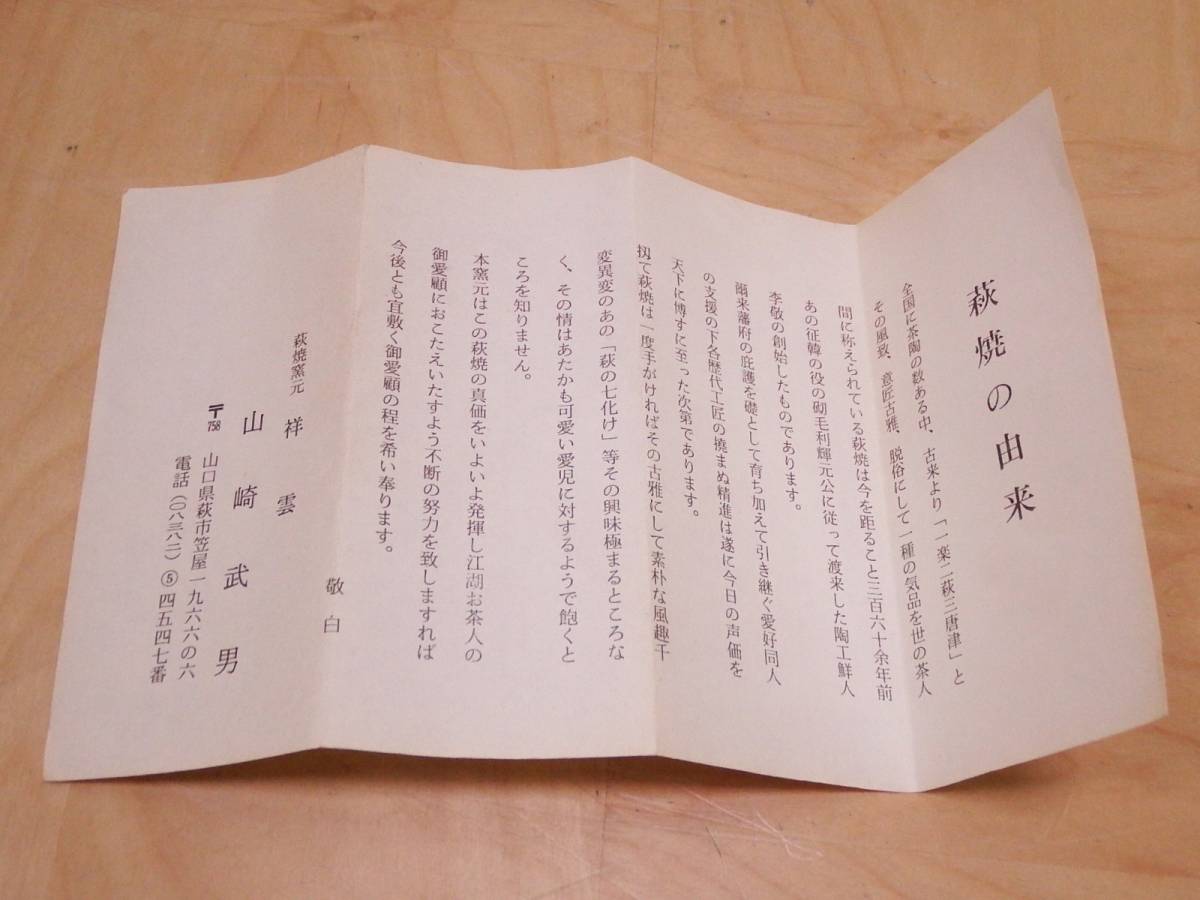 萩焼の由来
全国に茶陶の数ある中、古来より「一楽二萩三唐津」と
その風致、意匠古雅、脱俗にして一種の気品を世の茶人
間に称えられている萩焼は今を距ること三百六十余年前
あの征韓の役の砌毛利輝元公に従って渡来した陶工鮮人
李敬の創始したものであります。
爾来藩府の庇護を礎として育ち加えて引き継ぐ愛好同人
の支援の下各歴代工匠の撓まぬ精進は遂に今日の声価を
天下に博すに至った次第であります。
扨て萩焼は一度手がければその古雅にして素朴な風趣千
変異変のあの「萩の七化け」等その興味極まるところな
く、その情はあたかも可愛い愛児に対するようで飽くと
ころを知りません。
本窯元はこの萩焼の真価をいよいよ発揮し江湖お茶人の
御愛顧におこたえいたすよう不断の努力を致しますれば
今後とも宜敷く御愛顧の程を希い奉ります。
敬白
萩焼窯元 祥雲
山崎武男
〒758 山口県萩市笠屋一九六六の六
電話(〇八三八二)⑤四五四七番